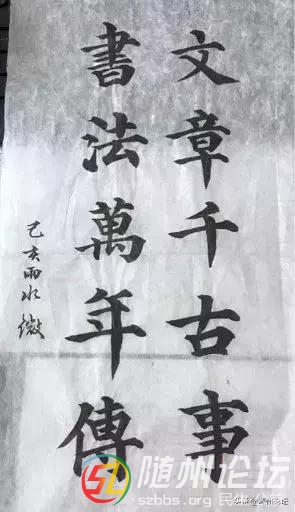 文章千古事
書法萬年傳
己亥雨水 微
随州论坛
szbbs.org 民生